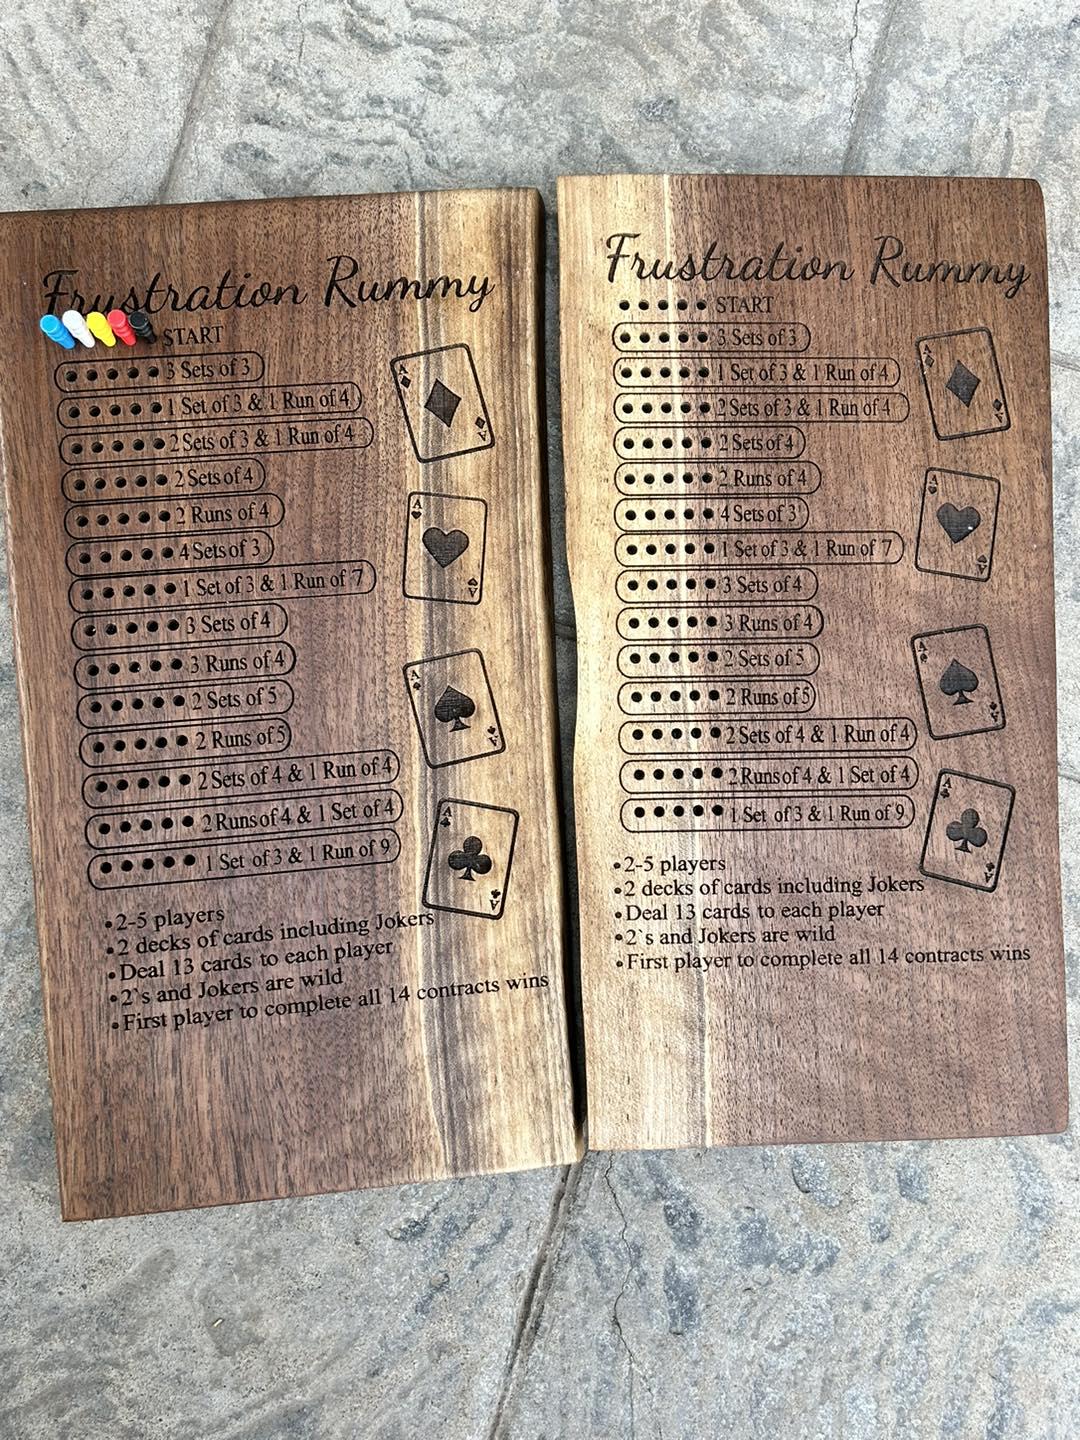 Frustration Rummy
START
3 Sets of 3
1 Set of 3 & 1 Run of 4
2 Sets of 3 & 1 Run of 4
2 Sets of 4
2 Runs of 4
4 Sets of 3
1 Set of 3 & 1 Run of 7
3 Sets of 4
3 Runs of 4
2 Sets of 5
2 Runs of 5
2 Sets of 4 & 1 Run of 4
2 Runs of 4 & 1 Set of 4
1 Set of 3 & 1 Run of 9
A
A
A
A
A
A
A
A
•2-5 players
•2 decks of cards including Jokers
•Deal 13 cards to each player
•2`s and Jokers are wild
•First player to complete all 14 contracts wins
Frustration Rummy
START
3 Sets of 3
1 Set of 3 & 1 Run of 4
2 Sets of 3 & 1 Run of 4
2 Sets of 4
2 Runs of 4
4 Sets of 3
1 Set of 3 & 1 Run of 7
3 Sets of 4
3 Runs of 4
2 Sets of 5
2 Runs of 5
2 Sets of 4 & 1 Run of 4
2 Runs of 4 & 1 Set of 4
1 Set of 3 & 1 Run of 9
A
A
A
A
A
A
A
A
•2-5 players
•2 decks of cards including Jokers
•Deal 13 cards to each player
•2`s and Jokers are wild
•First player to complete all 14 contracts wins